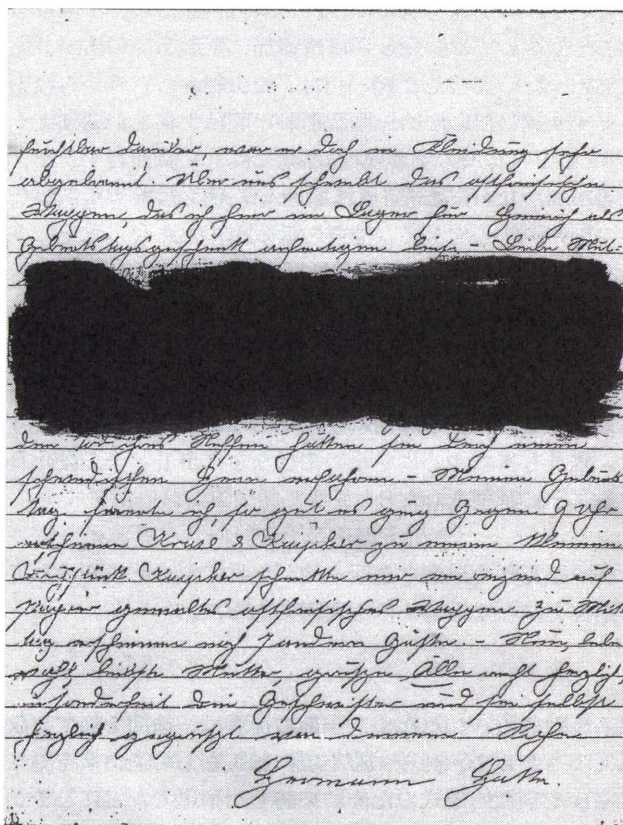 furchtbar darüber, war er doch in Kleidung sehr
abgebrannt. Über uns schwebt das ostfriesische
Wappen, das ich hier im Lager für Heinrich als
Geburtstagsgeschenk anfertigen ließ. – Liebe Mut-
den Tod ihres Neffen hatten sie durch einen
schwedischen Herrn erfahren. – Meinen Geburts
tag feierte ich, so gut es ging. Gegen 9 Uhr
erschienen Kruse & Kuyper zu meinem
Frühstück. Kuyper schenkte mir ein reizend auf
Papier gemaltes ostfriesisches Wappen. Zu Mit
tag erschienen noch 7 andere Gäste. – Nun, lebe
wohl liebste Mutter, grüße Alle recht herzlich,
insonderheit die Geschwister und sei selbst
herzlich gegrüßt von deinem Sohn
Hermann